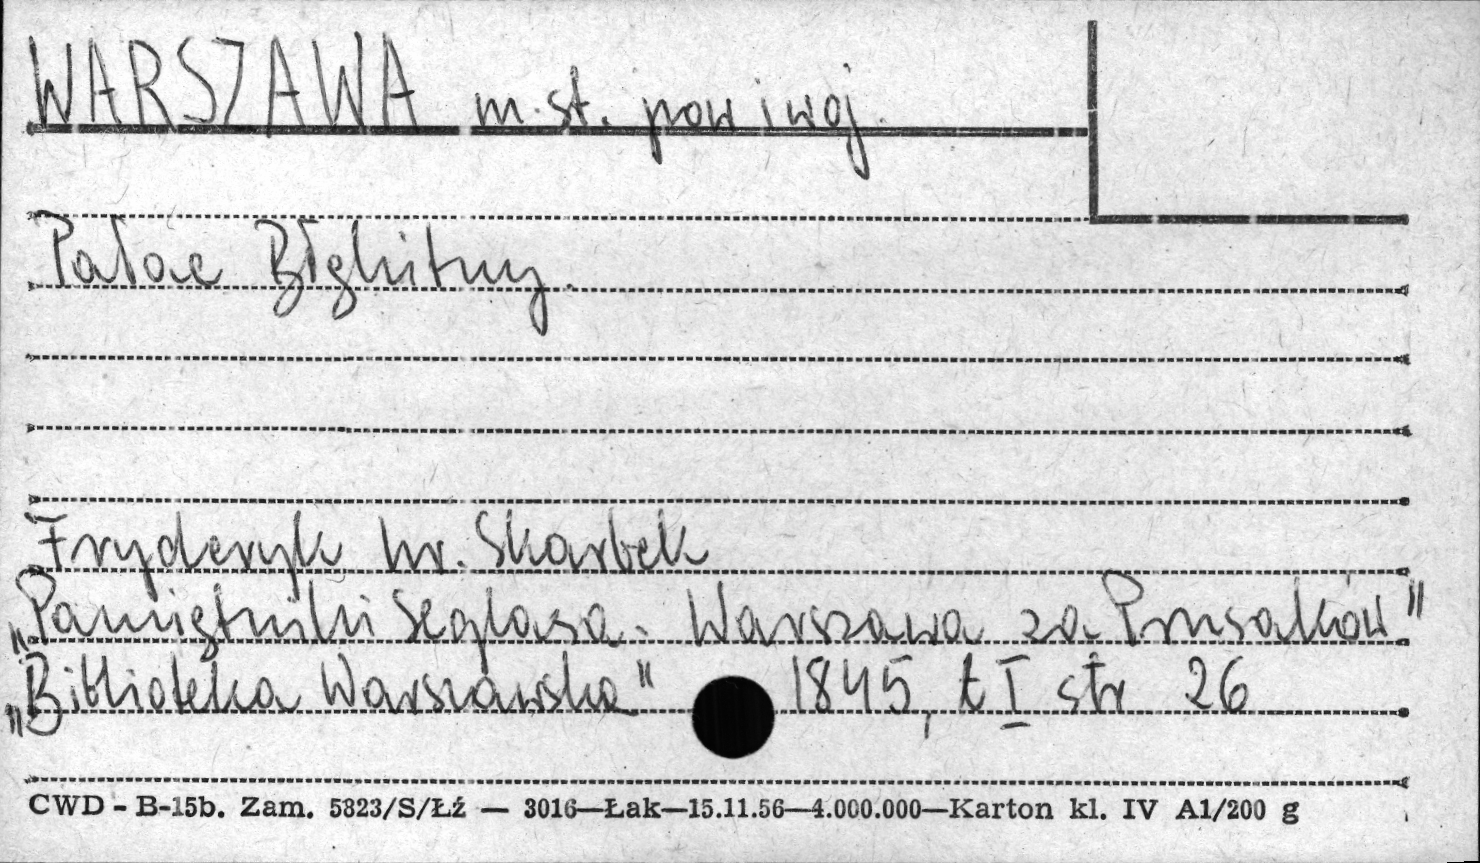 WARSZAWA m.st. pow i woj.
Pałac Błękitny.
Fryderyk hr. Skarbek
„Pamiętniki Seglasa. Warszawa za Prusaków"
„Biblioteka Warszawska" 1845, t I str 26
CWD - B-15b. Zam. 5823/S/Łź — 3016—Łak—15.11.56—4.000.000—Karton kl. IV A1/200 g